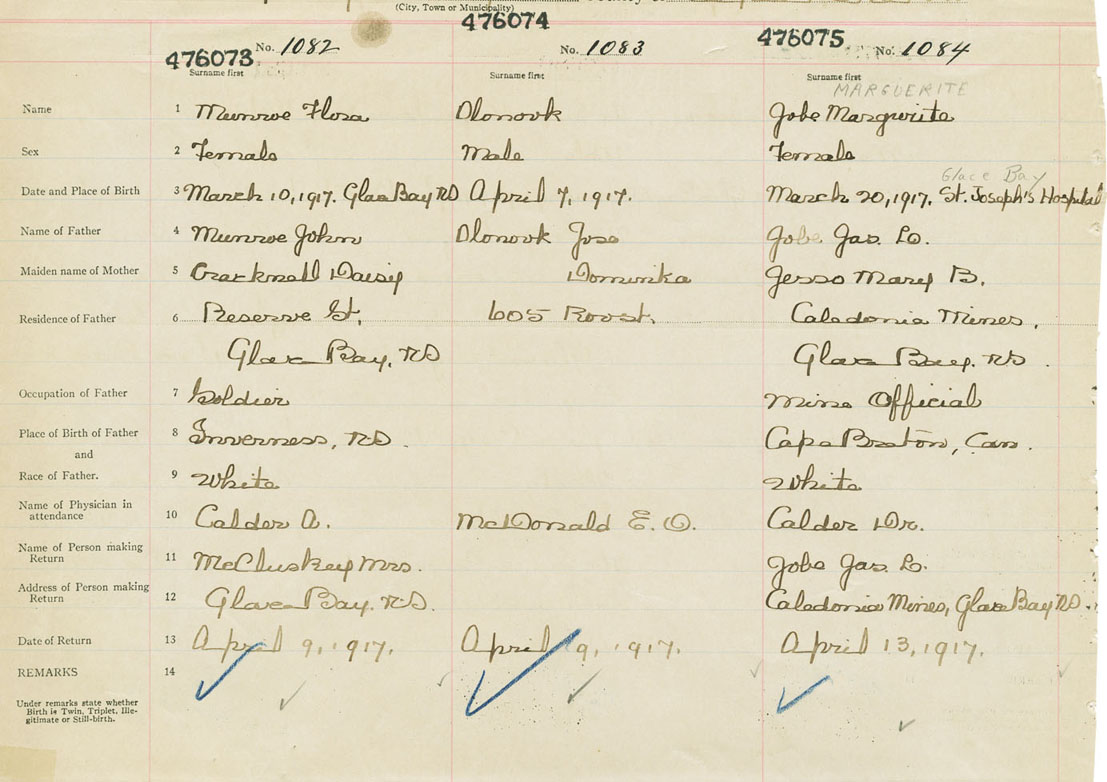 (City, Town or Municipality)
476073 No. 1082 476074 No. 1083 476075 No. 1084
Surname first Surname first Surname first
MARGUERITE
Name 1 Munroe Flora Olonovk Jobe Margurite
Sex 2 Female Male Female
Glace Bay
Date and Place of Birth 3 March 10, 1917. Glace Bay NS April 7, 1917. March 20, 1917. St. Joseph's Hospital
Name of Father 4 Munroe John Olonovk Jose Jobe Jas. L.
Maiden name of Mother 5 Cracknell Daisy Dominika Jesso Mary B.
Residence of Father 6 Reserve St. 605 Rovst. Caledonia Mines,
Glace Bay, NS Glace Bay, NS.
Occupation of Father 7 Soldier Mine Official
Place of Birth of Father 8 Inverness, NS. Cape Breton, Can.
and
Race of Father. 9 White White
Name of Physician in
attendance 10 Calder A. McDonald E. O. Calder Dr.
Name of Person making
Return 11 McCluskey Mrs. Jobe Jas. L.
Address of Person making
Return 12 Glace Bay, NS. Caledonia Mines, Glace Bay NS.
Date of Return 13 April 9, 1917. April 9, 1917. April 13, 1917.
REMARKS 14
Under remarks state whether
Birth is Twin, Triplet, Ille-
gitimate or Still-birth.